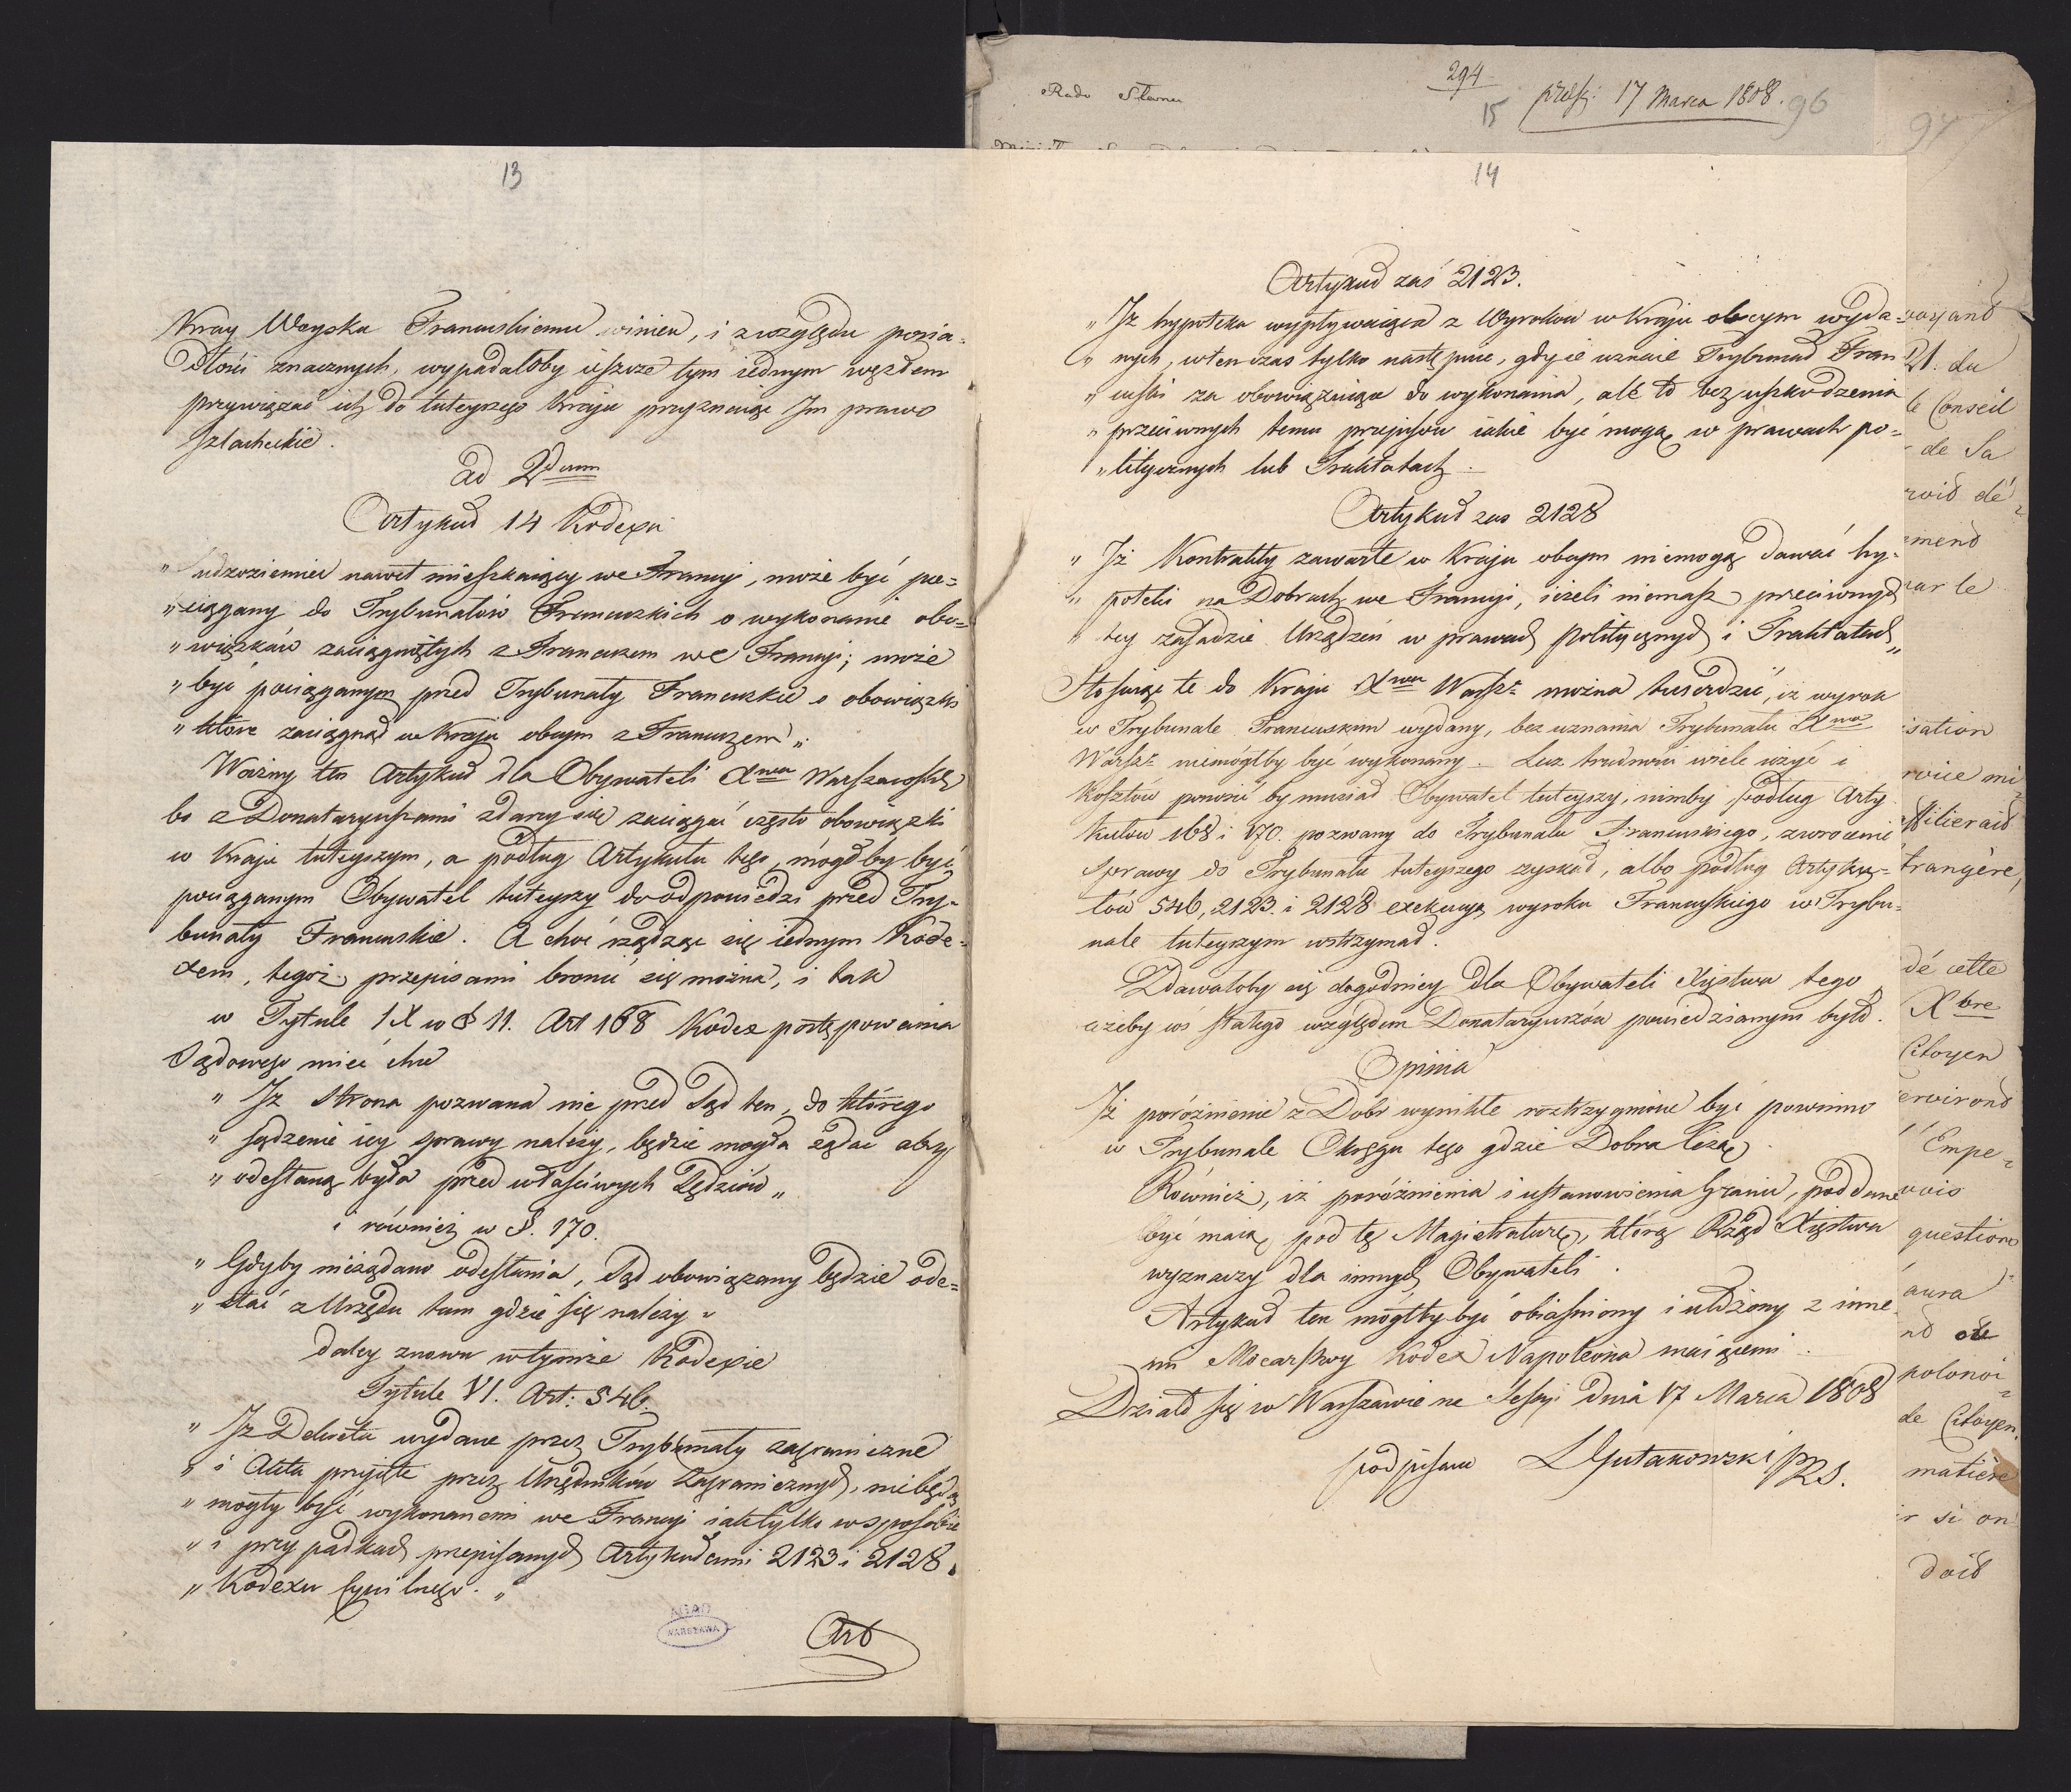 13
Kray Woyska Francuskiemu winien, i z względu posia-
dłości znacznych, wypadałoby ieszcze tym iednym węzłem
przywiązać ich do tuteyszego Kraju przyznaiąc Im prawo
szlacheckie.
ad 2dum
Artykuł 14 Kodexu
"Cudzoziemiec nawet mieszkaiący we Francyi, może być po=
"ciągany do Trybunałów Francuzkich o wykonanie obo=
"wiązków zaciągniętych z Francuzem we Francyi; może
"być pociąganym przed Trybunały Francuzkie o obowiązki
"które zaciągnął w Kraju obcym z Francuzem„
Ważny ten Artykuł dla Obywateli Xwa Warszawskie
bo z Donataryuszami zdarzy się zaciągać często obowiązki
w Kraju tuteyszym, a podług Artykułu tego, mógłby być
pociąganym Obywatel tuteyszy do odpowiedzi przed Try-
bunały Francuskie. A choć rządząc się iednym Kode-
xem, tegoż przepisami bronić się można, i tak
w Tytule IX w § 11. Art 168 Kodex postępowania
Sądowego mieć chce
"Iż Strona pozwana nie przed Sąd ten, do którego
"sądzenie iey sprawy należy, będzie mogła żądać aby
"odesłaną była przed właściwych Sędziów„
i również w §. 170.
"Gdyby nieżądano odesłania, Sąd obowiązany będzie ode=
"słać z Urzędu tam gdzie się należy„
daley znowu w tymże Kodexie
Tytule VI. Art: 546.
"Iż Dekreta wydane przez Trybunały zagraniczne
"i Akta przyjęte przez Urzędników Zagranicznych, nie będą
"mogły być wykonanemi we Francyi iak tylko w sposobie
"i przypadkach przepisanych Artykułami 2123 i 2128.
"Kodexu Cywilnego.„
AGAD
WARSZAWA
Art
Rada Stanu
294
15
præs: 17 Marca 1808.
96
97
14
Artykuł zaś 2123.
"Iż hypoteka wypływaiąca z Wyroków w Kraju obcym wyda=
"nych, wtenczas tylko następuie, gdy ie uznaie Trybunał Fran
"cuski za obowiązuiące do wykonania, ale to bez uszkodzenia
"przeciwnych temu przepisów iakie być mogą w prawach po=
"litycznych lub Traktatach.
Artykuł zas 2128
"Iż Kontrakty zawarte w Kraju obcym niemogą dawać hy-
"poteki na Dobrach we Francyi, ieżeli niemasz przeciwnych
"tey zasadzie Urządzeń w prawach politycznych i Traktatach„
Stosuiąc te do Kraju Xwa Warsz: można twierdzić, iż wyrok
w Trybunale Francuskim wydany, bez uznania Trybunału Xwa
Warsz: niemógłby być wykonany. Lecz trudności wiele użyć i
Kosztów ponosić by musiał Obywatel tuteyszy, nimby podług Arty
kułów 168 i 170. pozwany do Trybunału Francuskiego, zwrócenie
sprawy do Trybunału tuteyszego zyskał, albo podług Artyku=
łów 546, 2123. i 2128 exekucyą wyroku Francuskiego w Trybu=
nale tuteyszym wstrzymał.
Zdawałoby się dogodniey dla Obywateli Xięstwa tego
ażeby coś stałego względem Donataryuszów powiedzianym było.
Opinia
Iż poróżnienie z Dóbr wynikłe roztrzygnione być powinno
w Trybunale Okręgu tego gdzie Dobra leżą.
Również, iż poróżnienia i ustanowienia Granic, poddane
być maią pod tę Magistraturę, którą Rząd Xięstwa
wyznaczy dla innych Obywateli.
Artykuł ten mógłby być obiaśniony i ułożony z inne
mi Mocarstwy Kodex Napoleona maiącemi.
Działo się w Warszawie na Sessyi dnia 17 Marca 1808
podpisano L Gutakowski PRS.
21. du
le Conseil
de Sa
par le
isation
trangère,
dé cette
Xbre
Citoyen
Empe=
question
aura
polonoi=
de Citoyen.
matière
si on
doit